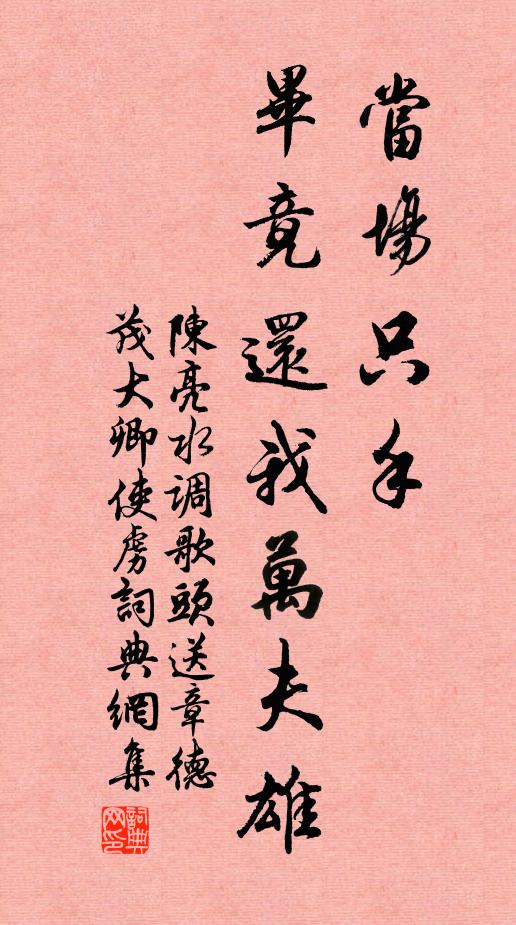 當場只手
畢竟還我萬夫雄
陳亮水调歌頭送章德
茂大卿使虜詞典網集
詞典
网印